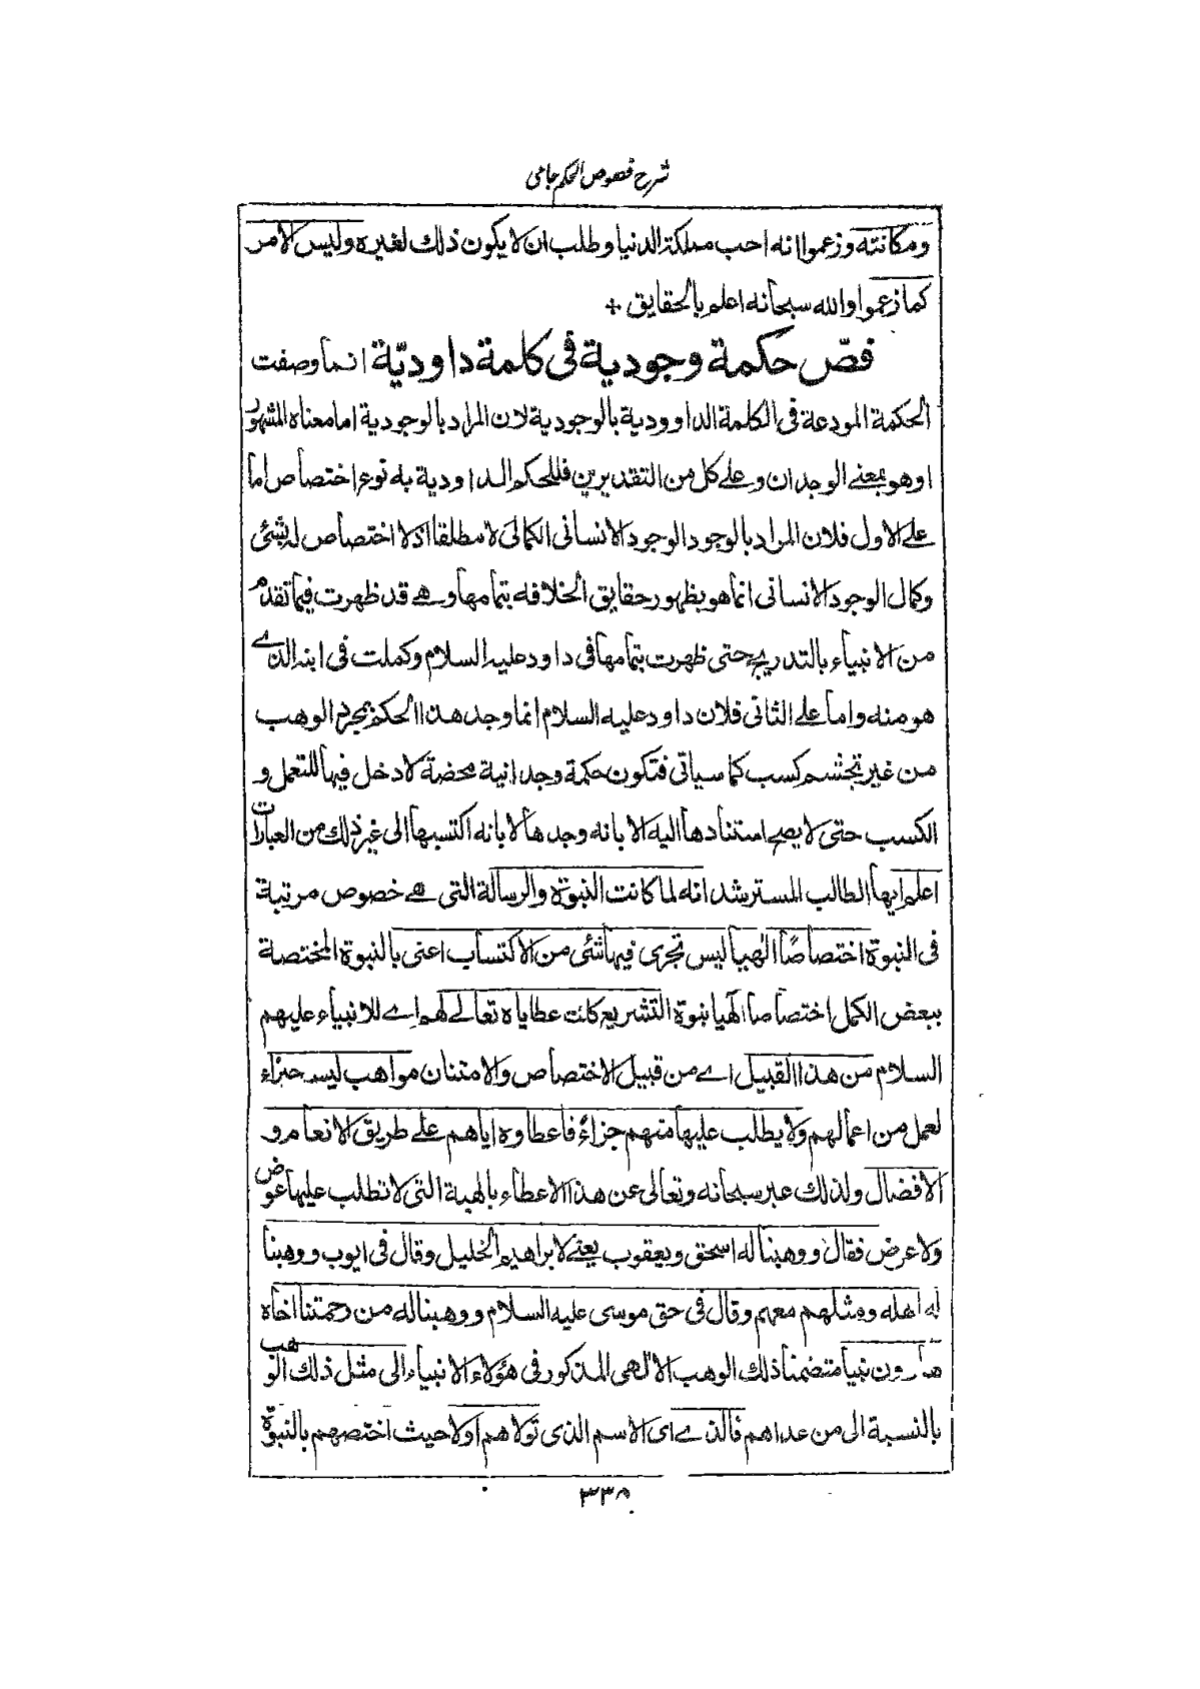 شرح فصوص الحكم جامى
ومكانته وزعموا انه احب مملكة الدنيا وطلب ان لا يكون ذلك لغيره وليس الامر
كما زعموا والله سبحانه اعلم بالحقايق +
فصّ حكمة وجودية فى كلمة داوديّة انما وصفت
الحكمة المودعة فى الكلمة الداوودية بالوجودية لان المراد بالوجودية اما معناه المشهور
او هو بمعنے الوجدان وعلے كل من التقديرين فللحكم الداودية به نوع اختصاص اما
علے الاول فلان المراد بالوجود الوجود الانسانى الكمالى لا مطلقا اذ لا اختصاص له بشئ
وكمال الوجود الانسانى انما هو بظهور حقايق الخلافه بتمامها وهے قد ظهرت فيما تقدم
من الانبياء بالتدريج حتى ظهرت بتمامها فى داود عليه السلام وكملت فى ابنه الذے
هو منه واما علے الثانى فلان داود عليه السلام انما وجد هذا الحكم بمجرد الوهب
من غير تجشم كسب كما سياتى فتكون حكمة وجدانية محضة لا دخل فيها للتعمل و
الكسب حتى لا يصح استنادها اليه الا بانه وجدها لا بانه اكتسبها الى غير ذلك من العبارات
اعلم ايها الطالب المسترشد انه لما كانت النبوة والرسالة التى هے خصوص مرتبة
فى النبوة اختصاصًا الٰهيا ليس تجرى فيها شئى من الاكتساب اعنى بالنبوة المختصة
ببعض الكمل اختصاصا الٰهيا نبوة التشريع كانت عطاياه تعالے لهم اے للانبياء عليهم
السلام من هذا القبيل اے من قبيل الاختصاص والامتنان مواهب ليست جزاء
لعمل من اعمالهم ولا يطلب عليها منهم جزاءً فاعطاوه اياهم علے طريق الانعام و
الافضال ولذلك عبر سبحانه وتعالى عن هذا الاعطاء بالهبة التى لا تطلب عليها عوض
ولا عرض فقال ووهبنا له اسحق ويعقوب يعنے لابراهيم الخليل وقال فى ايوب ووهبنا
له اهله ومثلهم معهم وقال فى حق موسى عليه السلام ووهبنا له من رحمتنا اخاه
هارون نبيا متضمنا ذلك الوهب الالٰهى المذكور فى هؤلاء الانبياء الى مثل ذلك الوهب
بالنسبة الى من عداهم فالذے اى الاسم الذى تولاهم اولا حيث اختصهم بالنبوّة
٣٣٨